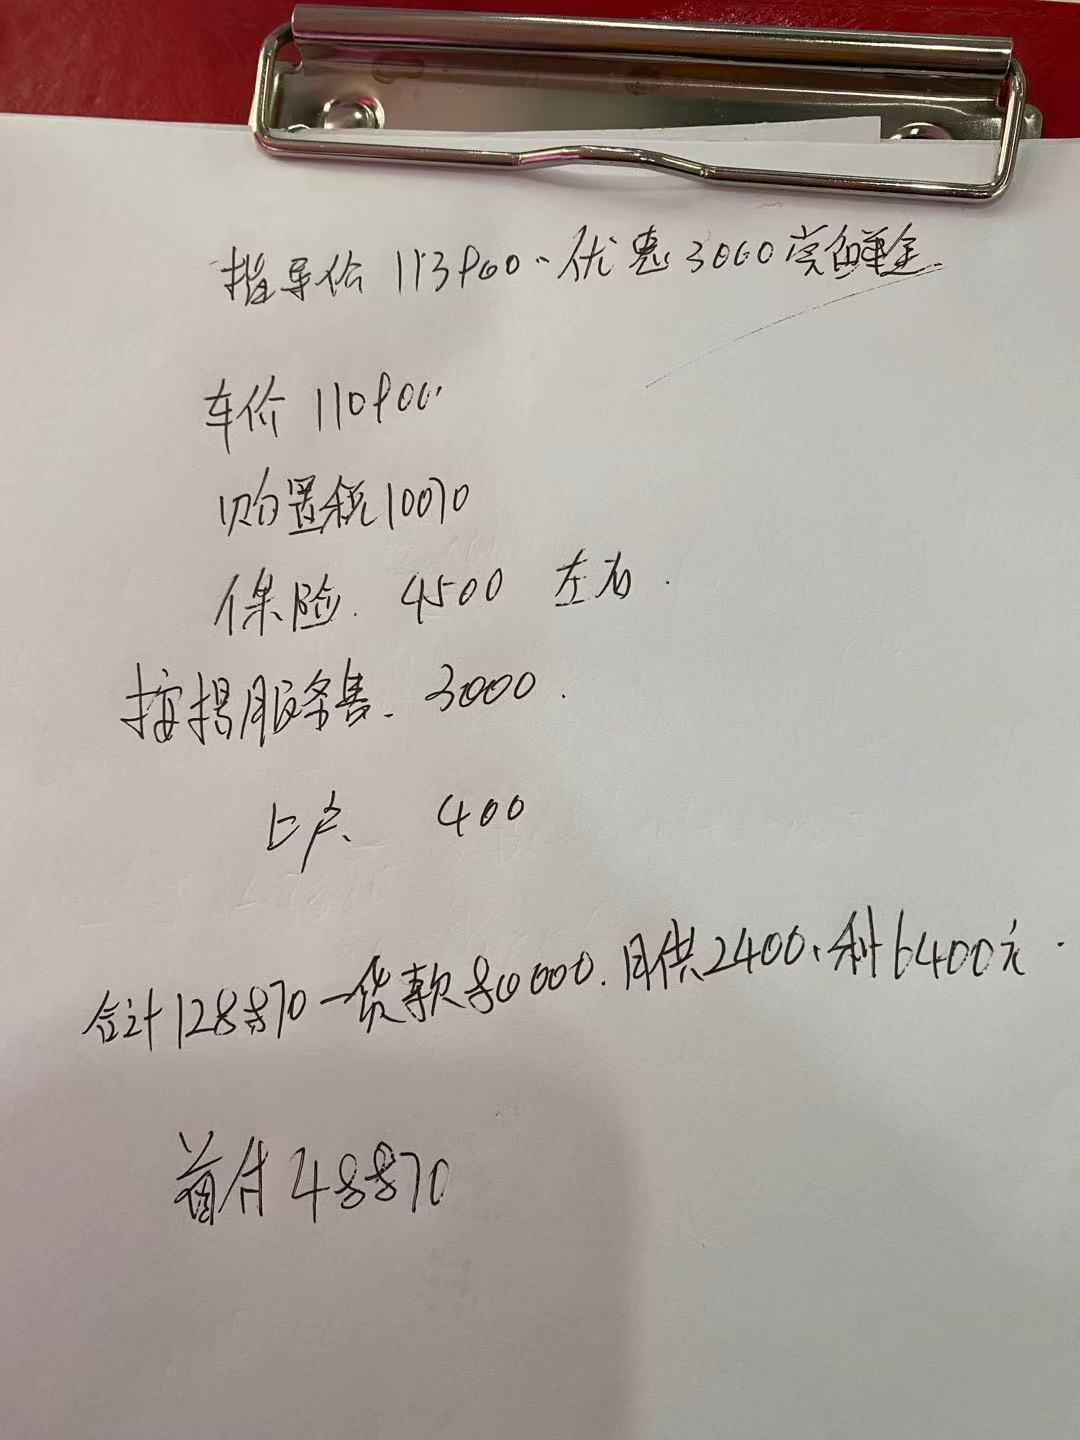 指导价 113900、优惠3000尝鲜金.
车价 110900.
购置税10070
保险. 4500 左右.
按揭服务费. 3000.
上户、 400
合计128870-贷款80000.月供2400、利6400元.
首付48870